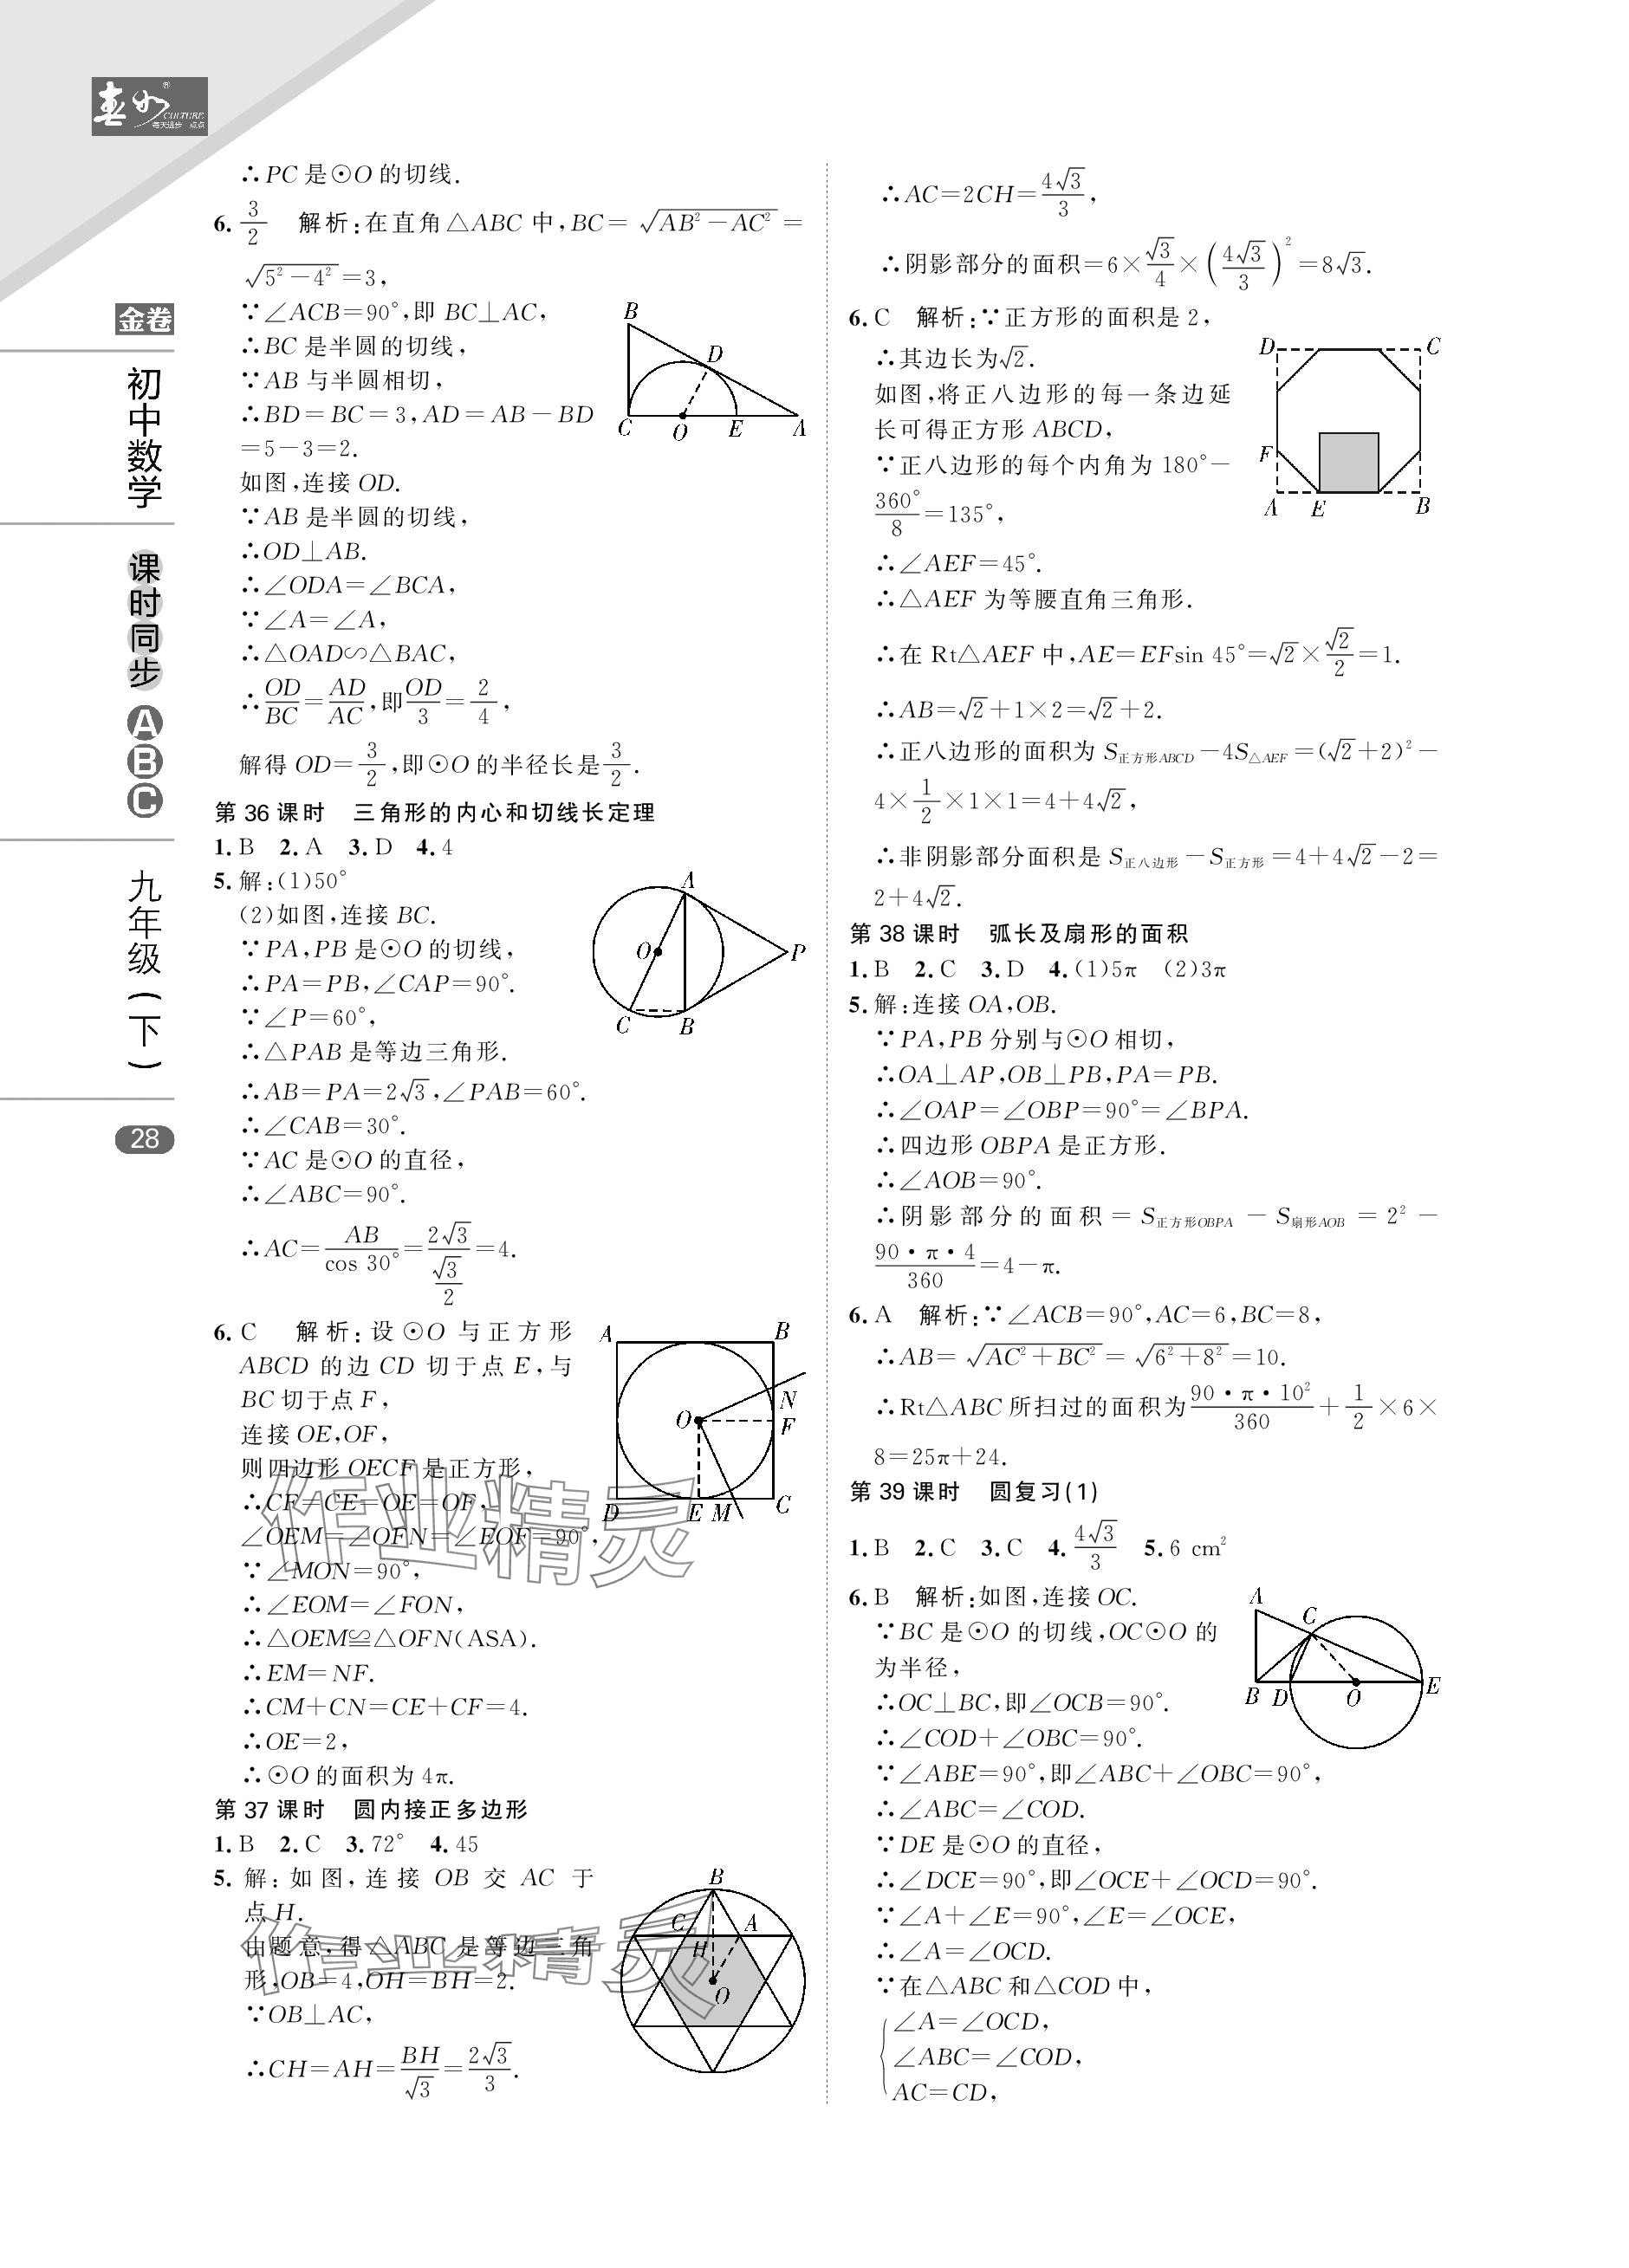 春如®
CULTURE
每天进步一点点
金卷
初中数学
课时同步
A
B
C
九年级(下)
28
∴PC是⊙O的切线.
6. 3/2 解析:在直角△ABC中,BC=√(AB²-AC²)=
√(5²-4²)=3,
∵∠ACB=90°,即BC⊥AC,
∴BC是半圆的切线,
∵AB与半圆相切,
∴BD=BC=3,AD=AB-BD
=5-3=2.
如图,连接OD.
∵AB是半圆的切线,
∴OD⊥AB.
∴∠ODA=∠BCA,
∵∠A=∠A,
∴△OAD∽△BAC,
∴OD/BC=AD/AC,即OD/3=2/4,
解得OD=3/2,即⊙O的半径长是3/2.
B
D
C
O
E
A
第36课时 三角形的内心和切线长定理
1. B 2. A 3. D 4. 4
5. 解:(1)50°
(2)如图,连接BC.
∵PA,PB是⊙O的切线,
∴PA=PB,∠CAP=90°.
∵∠P=60°,
∴△PAB是等边三角形.
∴AB=PA=2√3,∠PAB=60°.
∴∠CAB=30°.
∵AC是⊙O的直径,
∴∠ABC=90°.
∴AC=AB/cos 30°=2√3/(√3/2)=4.
A
O
P
C
B
6. C 解析:设⊙O与正方形
ABCD的边CD切于点E,与
BC切于点F,
连接OE,OF,
则四边形OECF是正方形,
∴CF=CE=OE=OF,
∠OEM=∠OFN=∠EOF=90°,
∵∠MON=90°,
∴∠EOM=∠FON,
∴△OEM≌△OFN(ASA).
∴EM=NF.
∴CM+CN=CE+CF=4.
∴OE=2,
∴⊙O的面积为4π.
A
B
N
O
F
D
E
M
C
作业精灵
第37课时 圆内接正多边形
1. B 2. C 3. 72° 4. 45
5. 解:如图,连接OB交AC于
点H.
由题意,得△ABC是等边三角
形,OB=4,OH=BH=2.
∵OB⊥AC,
∴CH=AH=BH/√3=2√3/3.
B
C
A
H
O
作业精灵
∴AC=2CH=4√3/3,
∴阴影部分的面积=6×√3/4×(4√3/3)²=8√3.
6. C 解析:∵正方形的面积是2,
∴其边长为√2.
如图,将正八边形的每一条边延
长可得正方形ABCD,
∵正八边形的每个内角为180°-
360°/8=135°,
∴∠AEF=45°.
∴△AEF为等腰直角三角形.
∴在Rt△AEF中,AE=EFsin 45°=√2×√2/2=1.
∴AB=√2+1×2=√2+2.
∴正八边形的面积为S正方形ABCD-4S△AEF=(√2+2)²-
4×1/2×1×1=4+4√2,
∴非阴影部分面积是S正八边形-S正方形=4+4√2-2=
2+4√2.
D
C
F
A
E
B
第38课时 弧长及扇形的面积
1. B 2. C 3. D 4. (1)5π (2)3π
5. 解:连接OA,OB.
∵PA,PB分别与⊙O相切,
∴OA⊥AP,OB⊥PB,PA=PB.
∴∠OAP=∠OBP=90°=∠BPA.
∴四边形OBPA是正方形.
∴∠AOB=90°.
∴阴影部分的面积=S正方形OBPA-S扇形AOB=2²-
90·π·4/360=4-π.
6. A 解析:∵∠ACB=90°,AC=6,BC=8,
∴AB=√(AC²+BC²)=√(6²+8²)=10.
∴Rt△ABC所扫过的面积为90·π·10²/360+1/2×6×
8=25π+24.
第39课时 圆复习(1)
1. B 2. C 3. C 4. 4√3/3 5. 6 cm²
6. B 解析:如图,连接OC.
∵BC是⊙O的切线,OC⊙O的
为半径,
∴OC⊥BC,即∠OCB=90°.
∴∠COD+∠OBC=90°.
∵∠ABE=90°,即∠ABC+∠OBC=90°,
∴∠ABC=∠COD.
∵DE是⊙O的直径,
∴∠DCE=90°,即∠OCE+∠OCD=90°.
∵∠A+∠E=90°,∠E=∠OCE,
∴∠A=∠OCD.
∵在△ABC和△COD中,
∠A=∠OCD,
∠ABC=∠COD,
AC=CD,
A
C
B
D
O
E